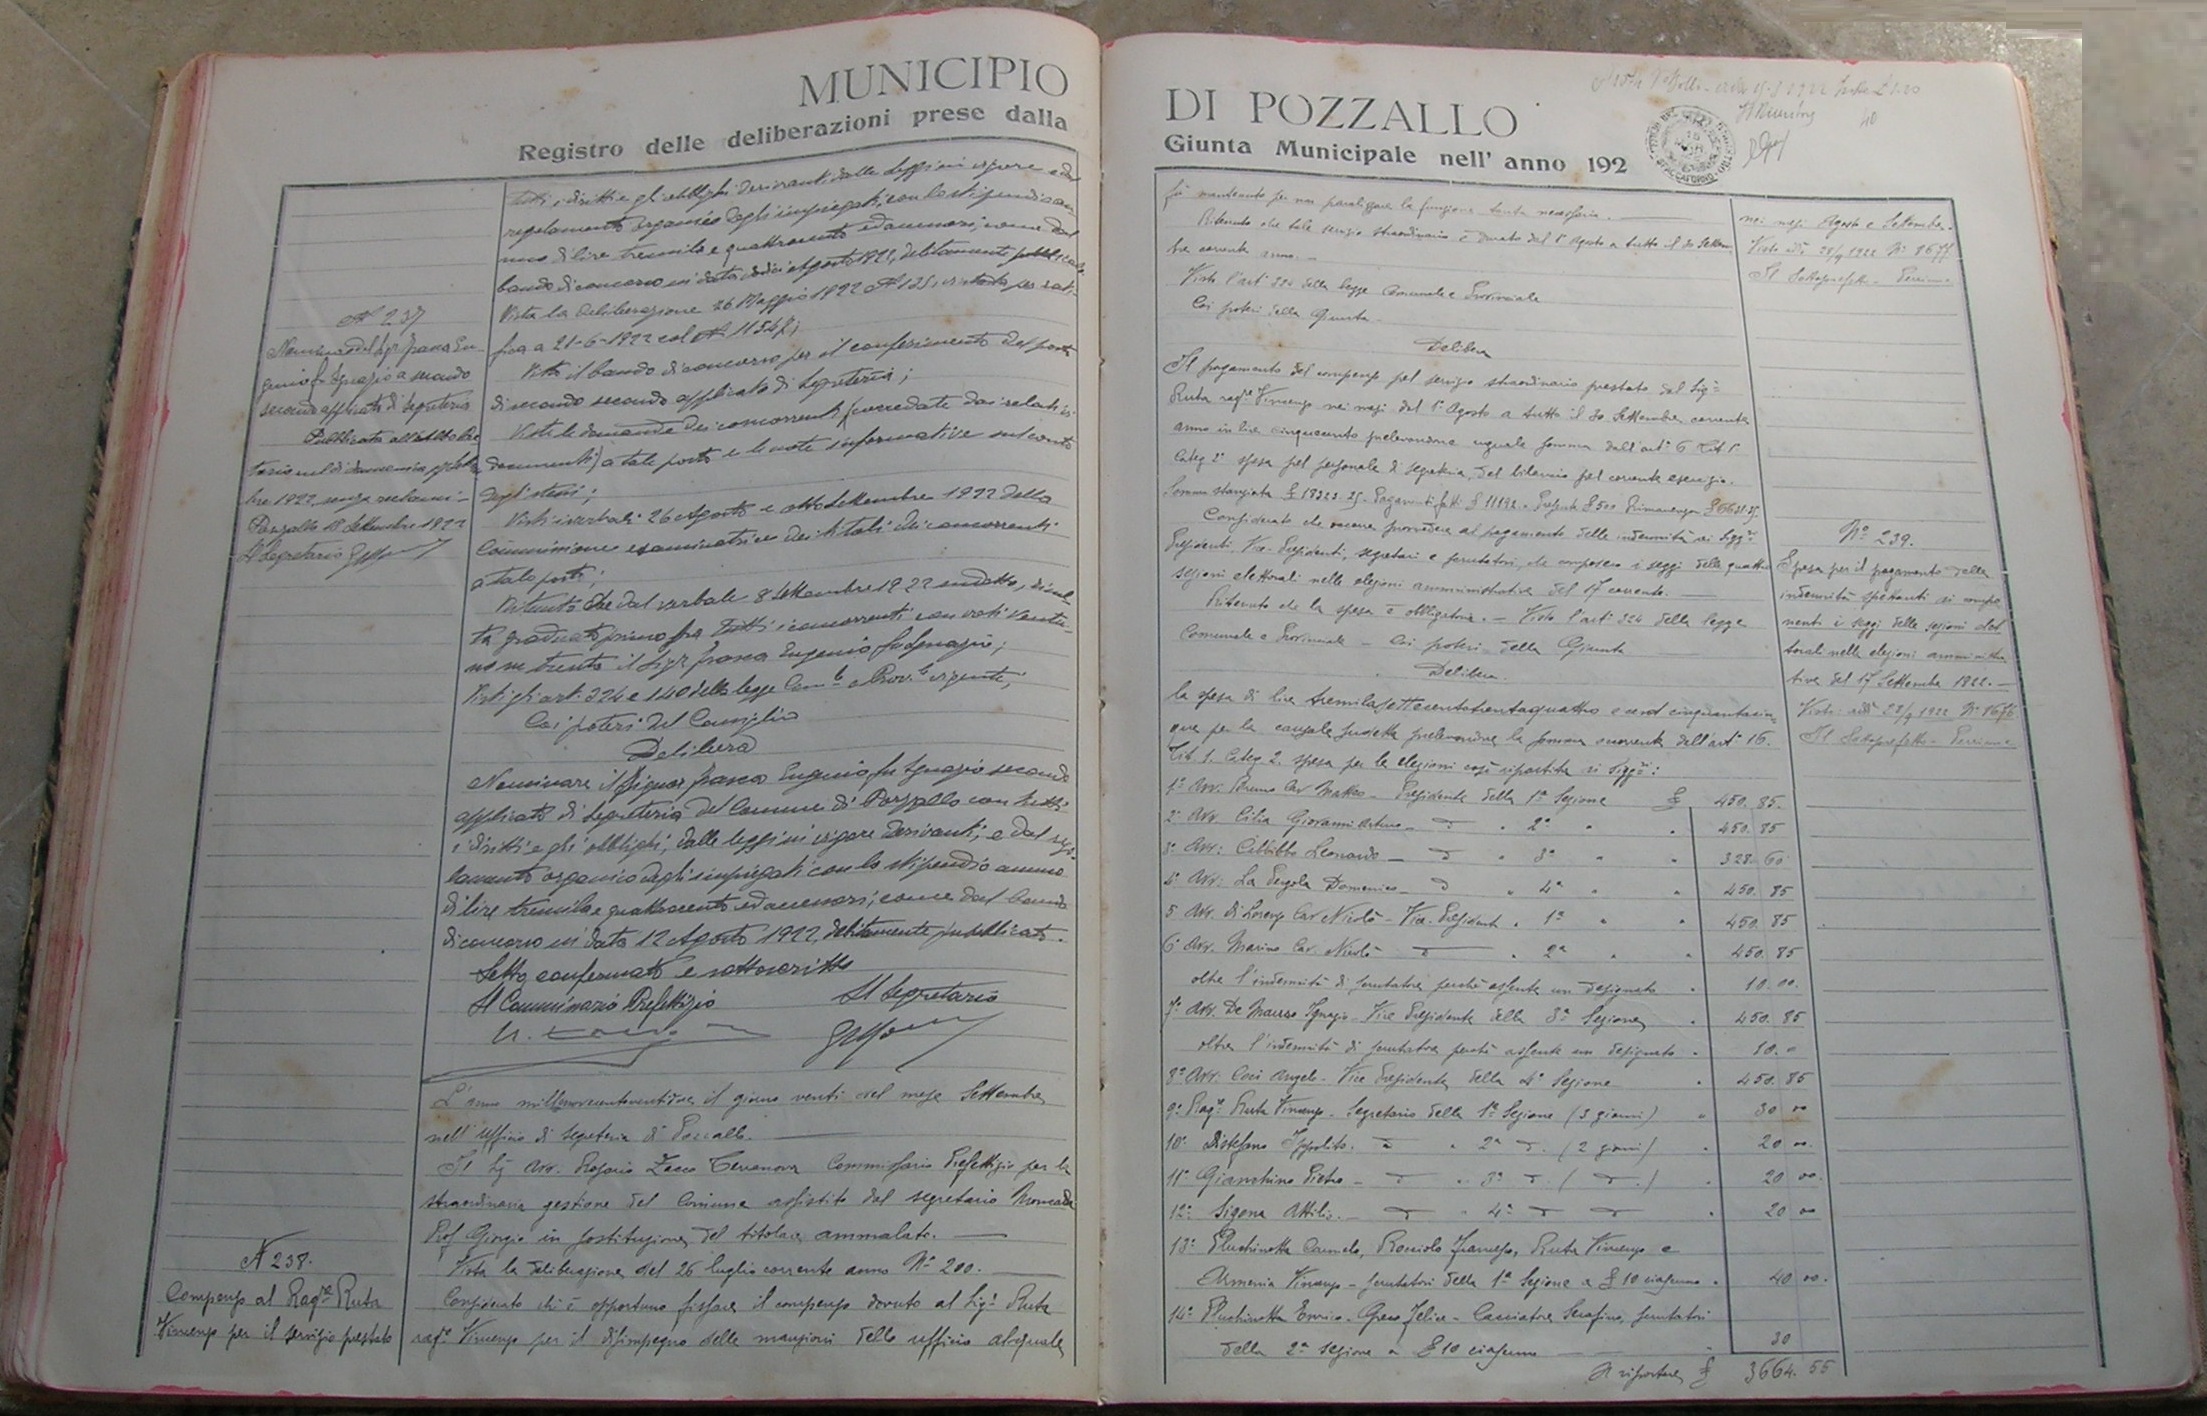 MUNICIPIO
Registro delle deliberazioni prese dalla
tutti i diritti e gli obblighi derivanti dalle leggi in vigore e dal
regolamento organico degli impiegati, con lo stipendio an-
nuo di lire tremila e quattrocento ed accessori, come dal
bando di concorso in data dodici Agosto 1922, debitamente pubblicato.
Vista la deliberazione 26 Maggio 1922 N 125, vistata per
fica a 21-6-1922 col N 11547;
Visto il bando di concorso per il conferimento del posto
di secondo secondo applicato di Segreteria;
Viste le domande dei concorrenti (corredate dai relativi
documenti) a tale posto e le note informative sul conto
degli stessi;
Visti i verbali 26 Agosto e otto Settembre 1922 della
Commissione esaminatrice dei titoli dei concorrenti
a tale posto;
Ritenuto che dal verbale 8 Settembre 1922 suddetto, risul-
ta graduato primo fra tutti i concorrenti con voti ventu-
no su trenta il Sigr Franza Eugenio fu Ignazio;
Visti gli art. 324 e 140 della legge Com.le e Prov.le vigente;
Coi poteri del Consiglio
Delibera
Nominare il Signor Franza Eugenio fu Ignazio secondo
applicato di Segreteria del Comune di Pozzallo con tutti
i diritti e gli obblighi, dalle leggi in vigore derivanti, e dal rego-
lamento organico degli impiegati con lo stipendio annuo
di lire tremila e quattrocento ed accessori, come dal bando
di concorso in data 12 Agosto 1922, debitamente pubblicato.
Letto confermato e sottoscritto
Il Commissario Prefettizio Il Segretario
L'anno millenovecentoventidue il giorno venti del mese Settembre
nell'Ufficio di Segreteria di Pozzallo.
Il Sig Avv. Rosario Zacco Terranova Commissario Prefettizio per la
straordinaria gestione del Comune assistito dal segretario Moncada
Prof Giorgio in sostituzione del titolare ammalato.
Vista la deliberazione del 26 luglio corrente anno No 200.
Considerato ch'è opportuno fissare il compenso dovuto al Sigr Ruta
ragre Vincenzo per il disimpegno delle mansioni dello ufficio al quale
N 237
Nomina del Sigr Franza Eu-
genio fu Ignazio a secondo
secondo applicato di Segreteria
Pubblicata all'Albo Pre
torio nel dì domenica
bre 1922, senza reclami -
Pozzallo 18 Settembre 1922
Il Segretario
N 238.
Compenso al Ragre Ruta
Vincenzo per il servizio prestato
DI POZZALLO
Giunta Municipale nell'anno 192
fu mantenuto per non paralizzare la funzione tanto necessaria.
Ritenuto che tale servizio straordinario è durato dal 1° Agosto a tutto il 30 Settem
bre corrente anno.
Visto l'art 324 della legge Comunale e Provinciale
Coi poteri della Giunta
Delibera
Il pagamento del compenso pel servizio straordinario prestato dal Sigr
Ruta ragre Vincenzo nei mesi dal 1° Agosto a tutto il 30 Settembre corrente
anno in lire cinquecento prelevandone uguale somma dall'art° 6 Tit 1°
Categ 2° spesa pel personale di segreteria, del bilancio pel corrente esercizio.
Somma stanziata £ 18323.25. Pagamenti fatti £ 11192. Presente £ 500 Rimanenza £ 6631.25.
Considerato che occorre provvedere al pagamento delle indennità ai Siggri
Presidenti, Vice-Presidenti, segretari e scrutatori, che composero i seggi delle quattro
sezioni elettorali nelle elezioni amministrative del 17 corrente.
Ritenuto che la spesa è obbligatoria. - Visto l'art 324 della legge
Comunale e Provinciale - Coi poteri della Giunta
Delibera.
la spesa di lire tremilasettecentotrentaquattro e cent cinquantacin-
que per la causale suddetta prelevandone la somma occorrente dall'art° 16.
Tit 1. Categ 2. spesa per le elezioni così ripartita ai Siggri:
1° Avv. Bruno Cav Matteo - Presidente della 1a Sezione £ 450. 85.
2° Avv Cilia Giovanni Arturo - 2a 450. 85
3° Avv: Cibbitto Leonardo - 3a 328. 60
4° Avv: La Pergola Domenico - 4a 450. 85
5. Avv. Di Lorenzo Cav Nicolò - Vice-Presidente 1a 450. 85
6° Avv. Marino Cav. Nicolò 2a 450. 85
oltre l'indennità di scrutatore perchè assente un designato 10. 00.
7° Avv. De Mauro Ignazio - Vice Presidente della 3a Sezione 450. 85
oltre l'indennità di scrutatore perchè assente un designato 10. 0
8° Avv: Coci Angelo - Vice Presidente della 4a Sezione 450. 85
9° Ragre Ruta Vincenzo - Segretario della 1a Sezione (3 giorni) 30 00
10° Distefano Ippolito. 2a (2 giorni) 20 00.
11° Gianchino Pietro - 3a 20 00.
12° Sigona Attilio. 4a 20 00
13° Pluchinotta Carmelo, Rocciolo Francesco, Ruta Vincenzo e
Armenia Vincenzo - scrutatori della 1a Sezione a £ 10 ciascuno 40 00.
14° Pluchinotta Enrico - Greco Felice - Cacciatore Serafino, scrutatori
della 2a sezione a £ 10 ciascuno 30
A riportare £ 3664. 55
nei mesi Agosto e Settembre.
Visto addì 28/9 1922 No 8677
Il Sottoprefetto
No 239.
Spesa per il pagamento delle
indennità spettanti ai compo
nenti i seggi delle sezioni elet
torali nelle elezioni amministra
tive del 17 Settembre 1922.
Visto: addì 28/9 1922 No 8676
Il Sottoprefetto